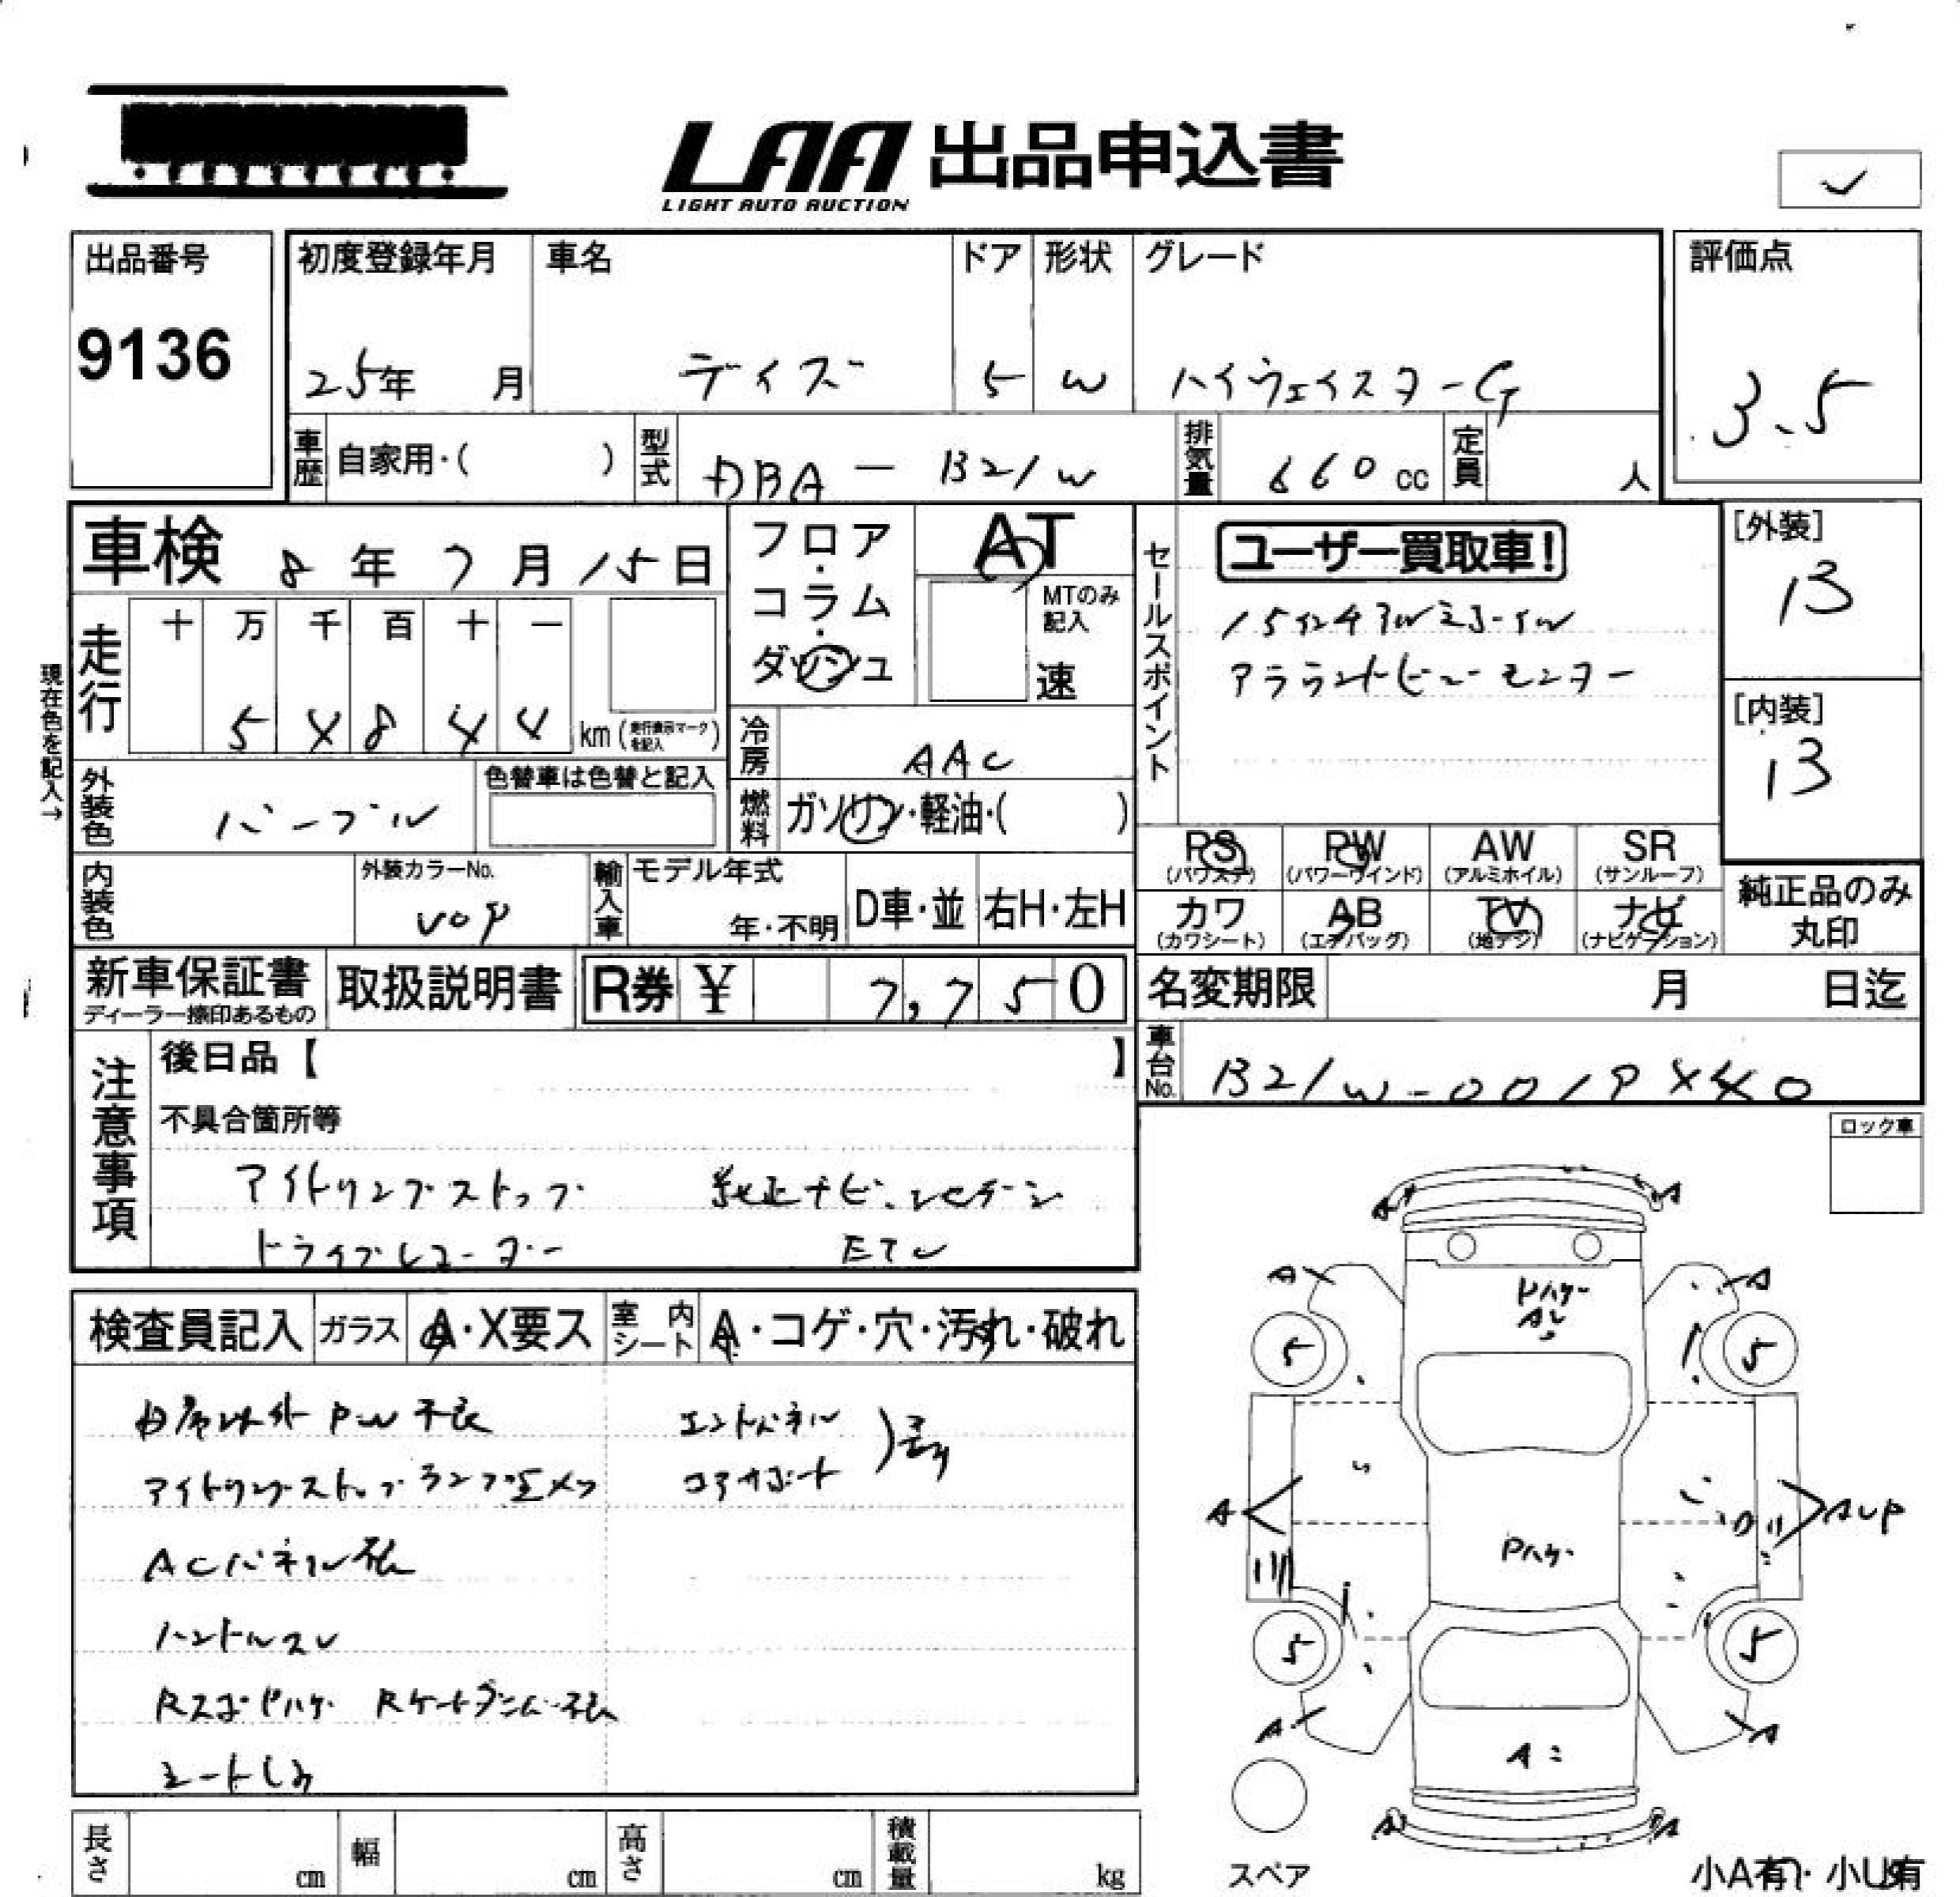 LAA 出品申込書
LIGHT AUTO AUCTION
✓
出品番号
9136
初度登録年月
25年 月
車名
デイズ
ドア
5
形状
W
グレード
ハイウェイスターG
評価点
3.5
車歴 自家用・( )
型式 DBA - B21W
排気量 660 cc
定員 人
車検 8年7月15日
フロア・コラム・ダッシュ
AT
MTのみ記入
速
セールスポイント
ユーザー買取車!
15インチアルミホイル
アラウンドビューモニター
[外装]
B
[内装]
B
現在色を記入→
走行
十 万 千 百 十 一
5 4 8 4 4 km (走行表示マークを記入)
冷房 AAC
外装色 パープル
色替車は色替と記入
燃料 ガソリン・軽油・( )
内装色
外装カラーNo.
輸入車
モデル年式
年・不明
D車・並
右H・左H
PS (パワステ)
PW (パワーウインド)
AW (アルミホイル)
SR (サンルーフ)
カワ (カワシート)
AB (エアバッグ)
TV (地デジ)
ナビ (ナビゲーション)
純正品のみ丸印
新車保証書
ディーラー捺印あるもの
取扱説明書
R券 ¥ 7,750
名変期限 月 日迄
車台No.
注意事項
後日品【 】
不具合箇所等
アイドリングストップ 純正ナビ
ドライブレコーダー ETC
ロック車
検査員記入
ガラス A・X要ス
室内シート A・コゲ・穴・汚れ・破れ
PW不良 エンドパネル
アイドリングストップランプ点メツ コアサポート
ACパネル
ハンドルスレ
シートしみ
A A
A A
Pハゲ
5 5
A AUP
Pハゲ
5 5
A A
A
A A
スペア
長さ cm
幅 cm
高さ cm
積載量 kg
小A有・小U有